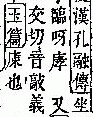 漢孔融傳坐
臨呀庨又
交切音敲義
玉篇康也